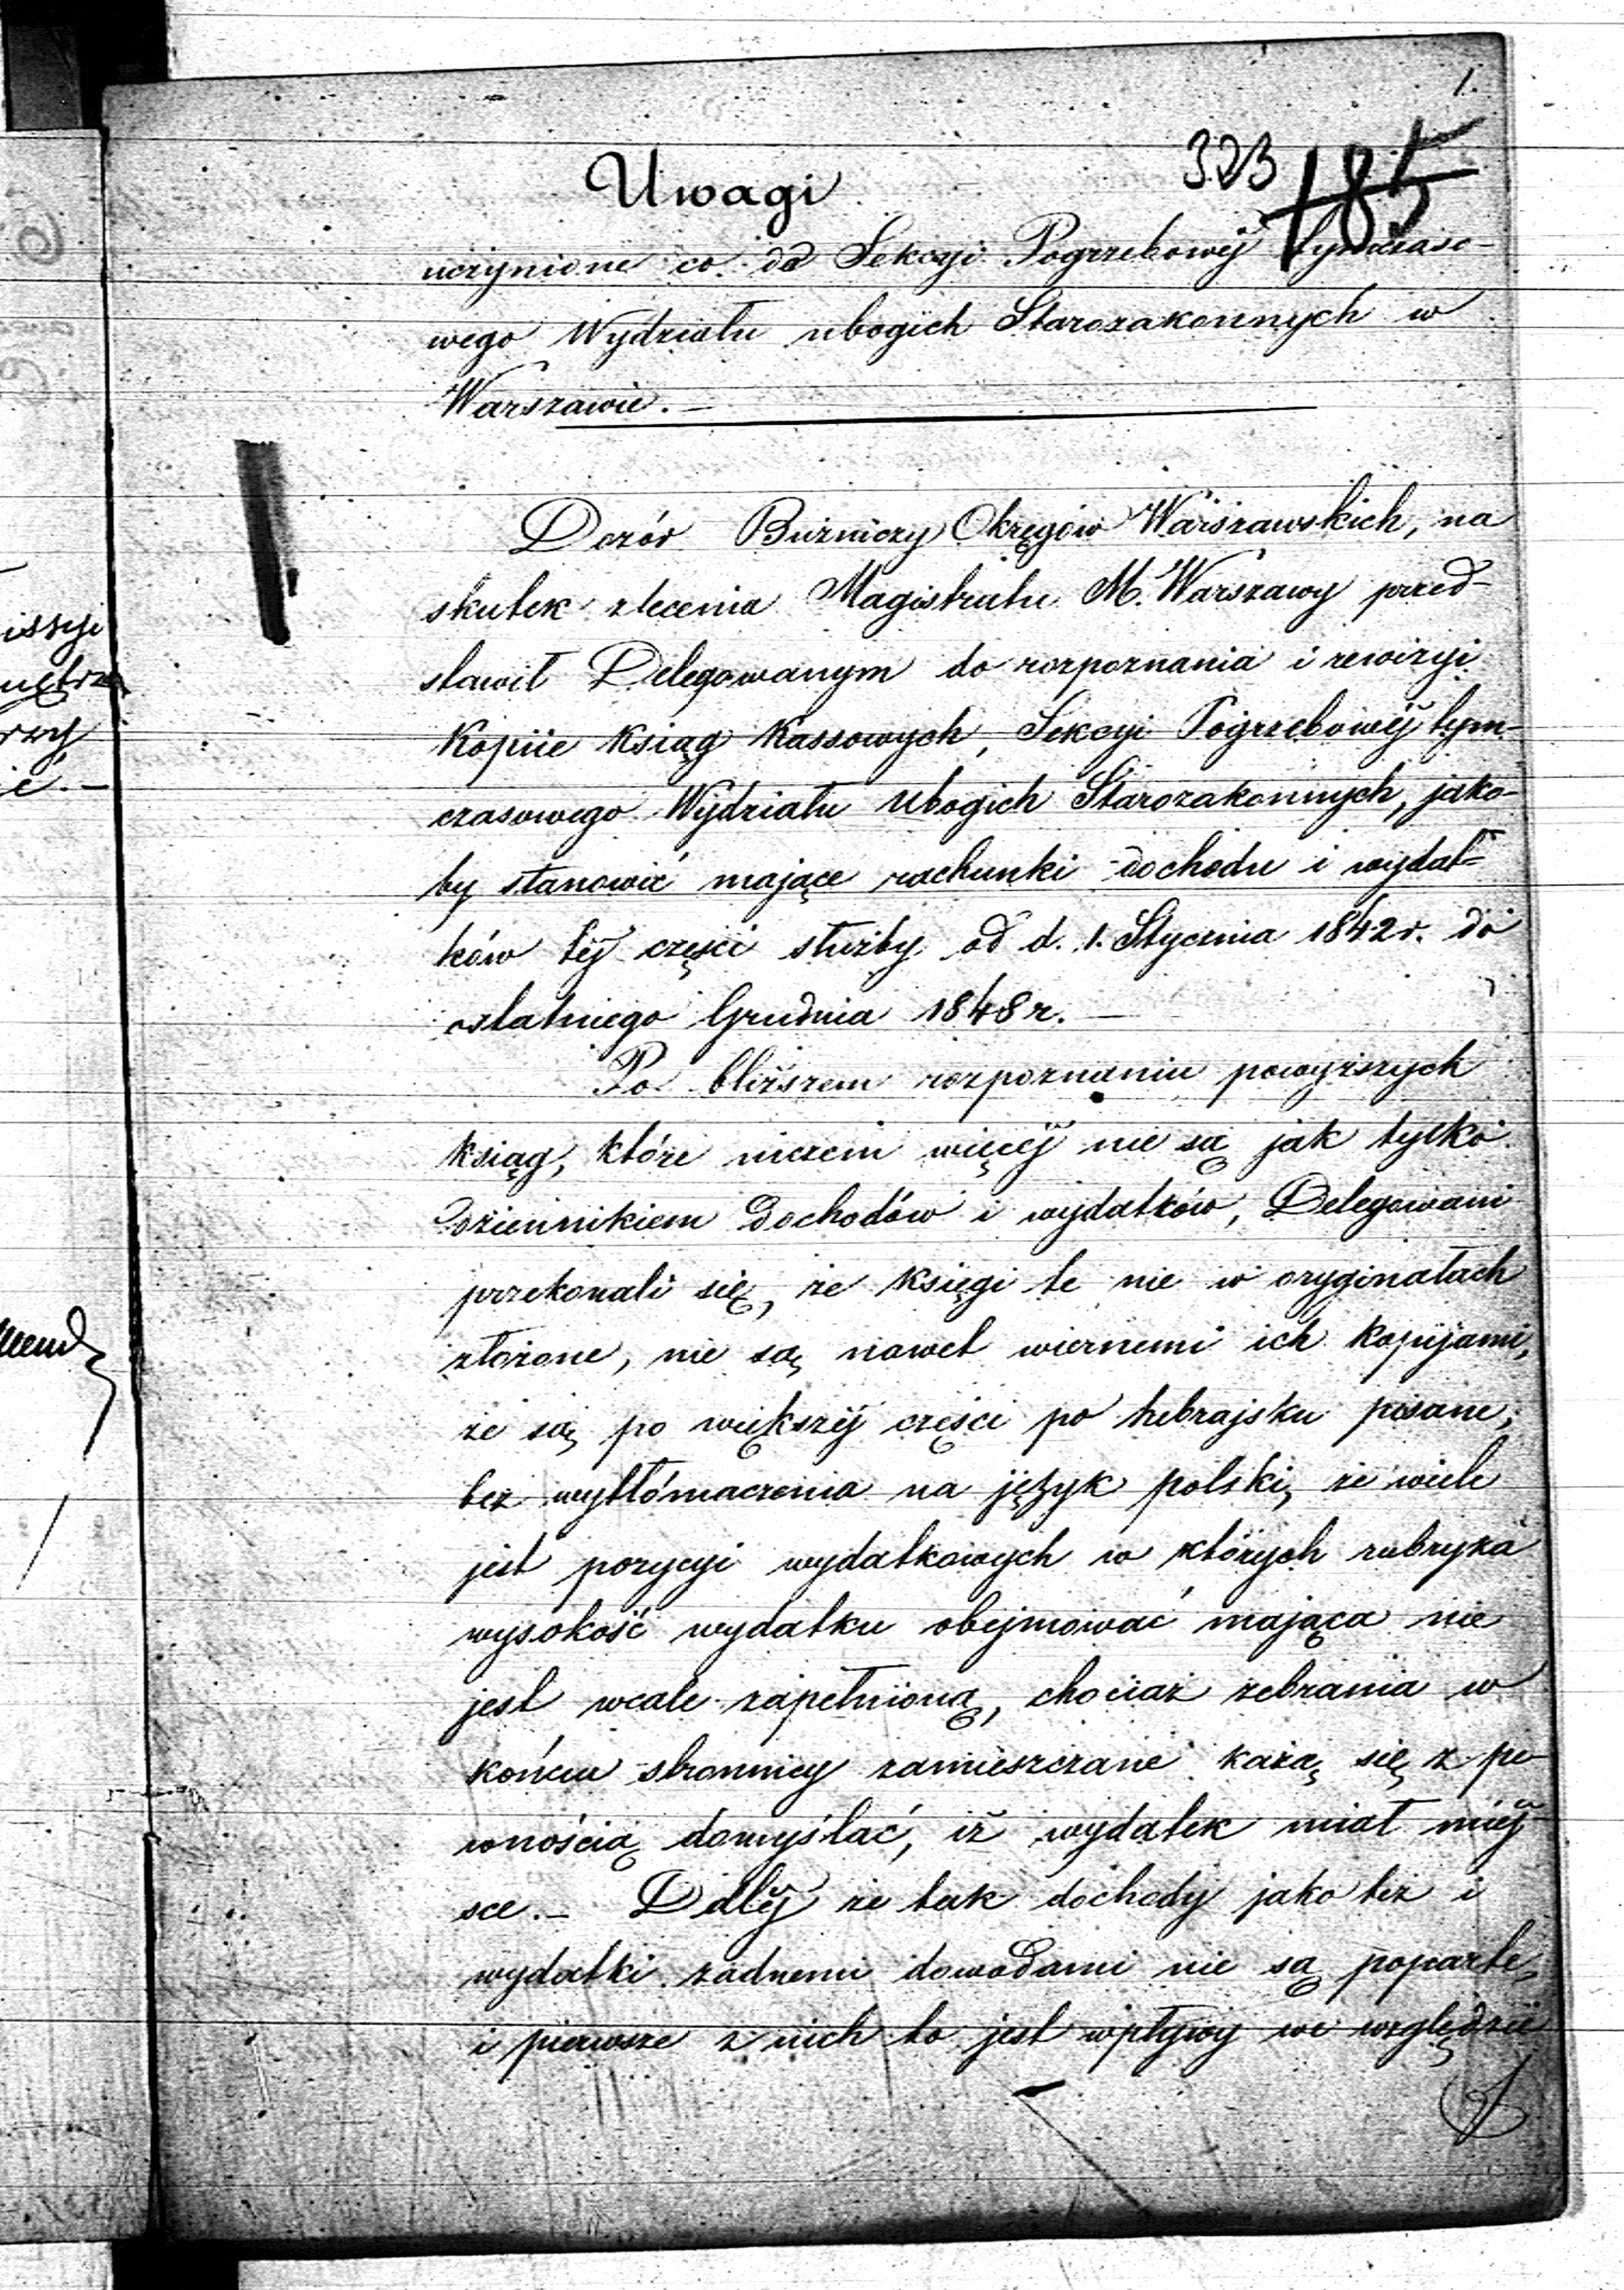 1.
323
185
Uwagi
uczynione co do Sekcyi Pogrzebowéj tymczaso-
wego Wydziału ubogich Starozakonnych w
Warszawie. —
Dozór Bużniczy Okręgów Warszawskich, na
skutek zlecenia Magistratu M. Warszawy przed-
stawił Delegowanym do rozpoznania i rewizyi
Kopiie Ksiąg Kassowych, Sekcyi Pogrzebowéj tym-
czasowego Wydziału Ubogich Starozakonnych, jako-
by stanowić mające rachunki dochodu i wydat=
ków téj części służby od d. 1. Stycznia 1842 r. do
ostatniego Grudnia 1848 r. —
Po bliższem rozpoznaniu powyższych
Ksiąg, które niczem więcéj nie są jak tylko
dziennikiem dochodów i wydatków, Delegowani
przekonali się, że Księgi te nie w oryginałach
złożone, nie są nawet wiernemi ich Kopijami,
że są po większéj części po hebrajsku pisane,
bez wytłómaczenia na język polski, że wiele
jest pozycyi wydatkowych w których rubryka
wysokość wydatku obejmować mająca nie
jest wcale zapełnioną, chociaż zebrania w
końcu stronnicy zamieszczane każą się z pe-
wnością domyślać, iż wydatek miał miéj
sce. — Daléj że tak dochody jako też i
wydatki żadnemi dowodami nie są poparte,
i pierwsze z nich to jest wpływy we względzie
issyi
nętrz
rzy
ie. —